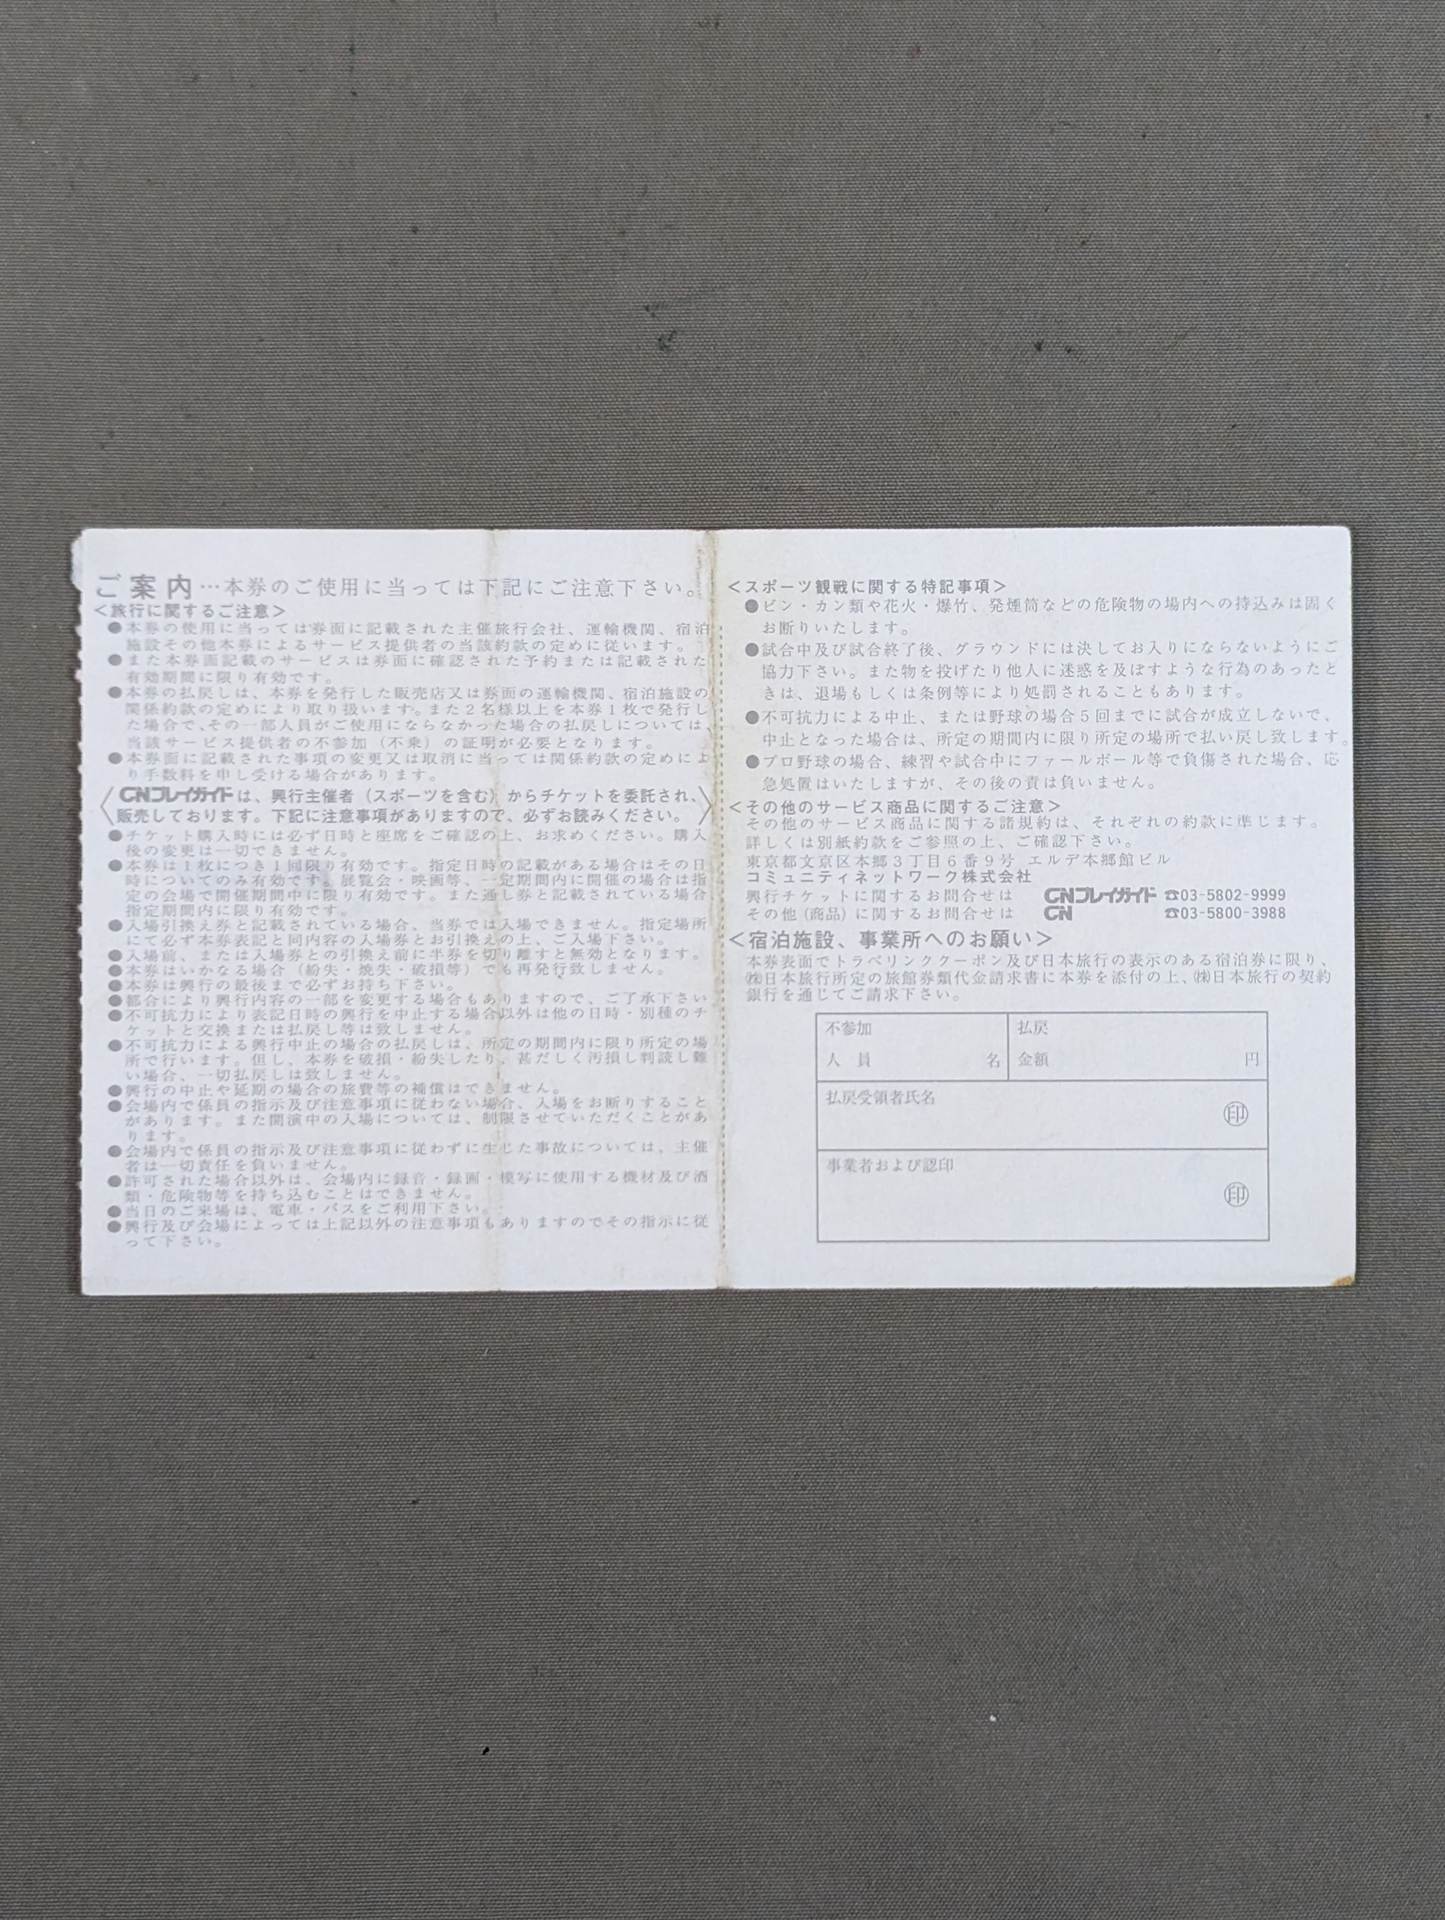 ご案内…本券のご使用に当っては下記にご注意下さい。
＜旅行に関するご注意＞
●本券の使用に当っては券面に記載された主催旅行会社、運輸機関、宿泊
施設その他本券によるサービス提供者の当該約款の定めに従います。
●また本券面記載のサービスは券面に確認された予約または記載された
有効期間に限り有効です。
●本券の払戻しは、本券を発行した販売店又は券面の運輸機関、宿泊施設の
関係約款の定めにより取り扱います。また２名様以上を本券１枚で発行し
た場合で、その一部人員がご使用にならなかった場合の払戻しについては、
当該サービス提供者の不参加（不乗）の証明が必要となります。
●本券面に記載された事項の変更又は取消に当っては関係約款の定めによ
り手数料を申し受ける場合があります。
〈CNプレイガイドは、興行主催者（スポーツを含む）からチケットを委託され、
販売しております。下記に注意事項がありますので、必ずお読みください。〉
●チケット購入時には必ず日時と座席をご確認の上、お求めください。購入
後の変更は一切できません。
●本券は１枚につき１回限り有効です。指定日時の記載がある場合はその日
時についてのみ有効です。展覧会・映画等、一定期間内に開催の場合は指
定の会場で開催期間中に限り有効です。また通し券と記載されている場合
指定期間内に限り有効です。
●入場引換え券と記載されている場合、当券では入場できません。指定場所
にて必ず本券表記と同内容の入場券とお引換えの上、ご入場下さい。
●入場前、または入場券との引換え前に半券を切り離すと無効となります。
●本券はいかなる場合（紛失・焼失・破損等）でも再発行致しません。
●本券は興行の最後まで必ずお持ち下さい。
●都合により興行内容の一部を変更する場合もありますので、ご了承下さい
●不可抗力により表記日時の興行を中止する場合以外は他の日時・別種のチ
ケットと交換または払戻し等は致しません。
●不可抗力による興行中止の場合の払戻しは、所定の期間内に限り所定の場
所で行います。但し、本券を破損・紛失したり、甚だしく汚損し判読し難
い場合、一切払戻しは致しません。
●興行の中止や延期の場合の旅費等の補償はできません。
●会場内で係員の指示及び注意事項に従わない場合、入場をお断りすること
があります。また開演中の入場については、制限させていただくことがあ
ります。
●会場内で係員の指示及び注意事項に従わずに生じた事故については、主催
者は一切責任を負いません。
●許可された場合以外は、会場内に録音・録画・模写に使用する機材及び酒
類・危険物等を持ち込むことはできません。
●当日のご来場は、電車・バスをご利用下さい。
●興行及び会場によっては上記以外の注意事項もありますのでその指示に従
って下さい。
＜スポーツ観戦に関する特記事項＞
●ビン・カン類や花火・爆竹、発煙筒などの危険物の場内への持込みは固く
お断りいたします。
●試合中及び試合終了後、グラウンドには決してお入りにならないようにご
協力下さい。また物を投げたり他人に迷惑を及ぼすような行為のあったと
きは、退場もしくは条例等により処罰されることもあります。
●不可抗力による中止、または野球の場合５回までに試合が成立しないで、
中止となった場合は、所定の期間内に限り所定の場所で払い戻し致します。
●プロ野球の場合、練習や試合中にファールボール等で負傷された場合、応
急処置はいたしますが、その後の責は負いません。
＜その他のサービス商品に関するご注意＞
その他のサービス商品に関する諸規約は、それぞれの約款に準じます。
詳しくは別紙約款をご参照の上、ご確認下さい。
東京都文京区本郷３丁目６番９号 エルデ本郷館ビル
コミュニティネットワーク株式会社
興行チケットに関するお問合せは CNプレイガイド ☎03-5802-9999
その他（商品）に関するお問合せは CN ☎03-5800-3988
＜宿泊施設、事業所へのお願い＞
本券表面でトラベリンククーポン及び日本旅行の表示のある宿泊券に限り、
㈱日本旅行所定の旅館券類代金請求書に本券を添付の上、㈱日本旅行の契約
銀行を通じてご請求下さい。
不参加 払戻
人員 名 金額 円
払戻受領者氏名
㊞
事業者および認印
㊞